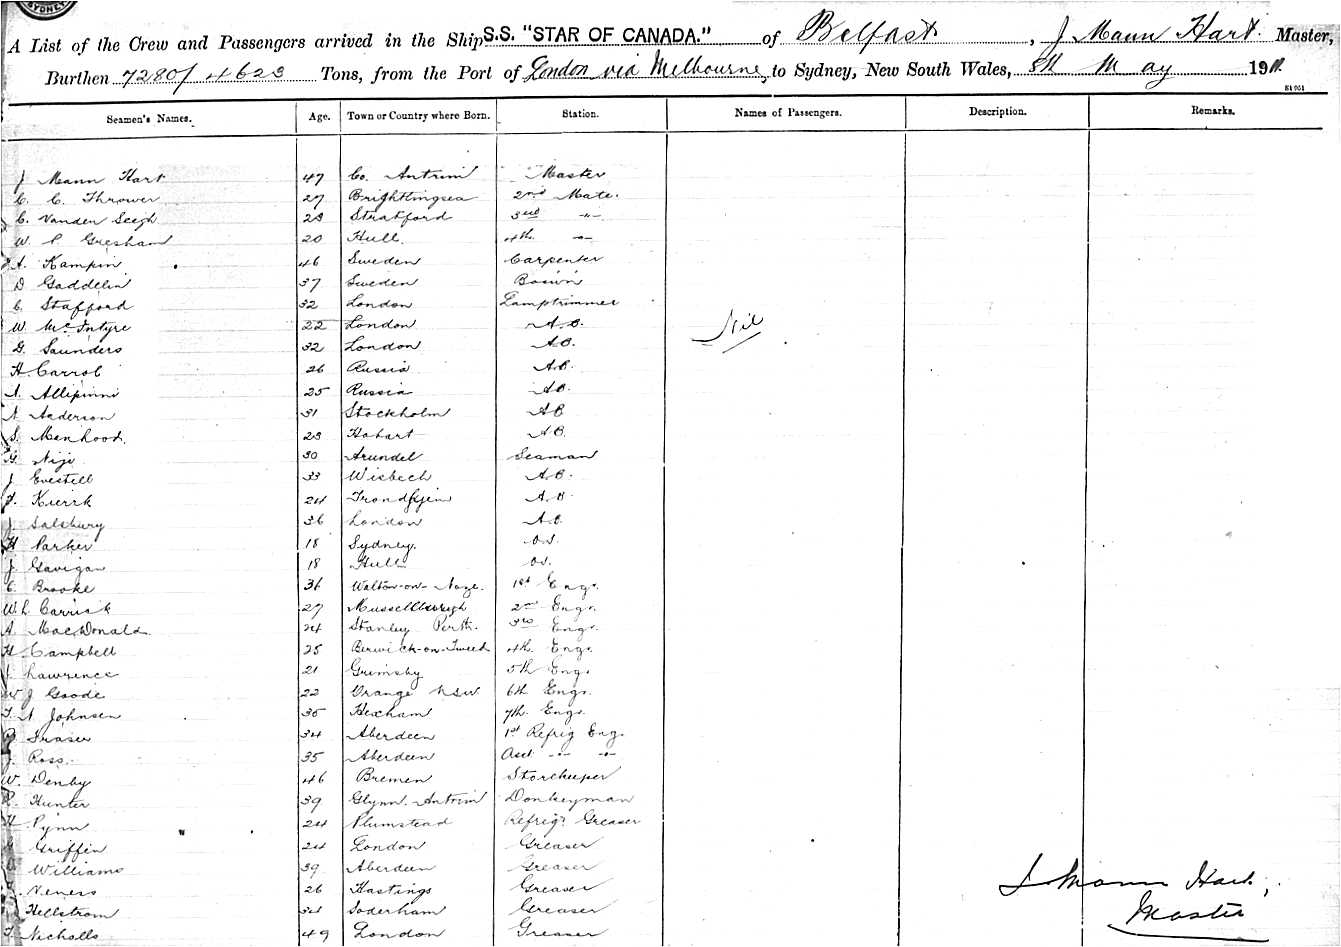 SYDNEY
A List of the Crew and Passengers arrived in the Ship S.S. "STAR OF CANADA." of Belfast, J Mann Hart Master,
Burthen 7280/4623 Tons, from the Port of London via Melbourne, to Sydney, New South Wales, 8th May 1911.
Seamen's Names. Age. Town or Country where Born. Station. Names of Passengers. Description. Remarks.
J Mann Hart 47 Co. Antrim Master
C. C. Thrower 27 Brightlingsea 2nd Mate.
C. Vanden Seegh 23 Stratford 3rd -"-
W. P Gresham 20 Hull. 4th. -"-
A. Kampin 46 Sweden Carpenter
D Gaddelin 37 Sweden Bosun
C. Stafford 32 London Lamptrimmer
W. McIntyre 22 London A.B.
Nil
G. Saunders 32 London A.B.
H. Carrol 26 Russia A.B.
A. Allipinni 25 Russia A.B.
A Anderson 31 Stockholm A.B
S. Menhood. 23 Hobart A.B.
Niji 30 Arundel Seaman
J Evestell 33 Wisbech A.B.
Kierik 24 Trondhjein A.B.
J. Salsbury 36 London A.B.
H Parker 18 Sydney. O.S.
J Gavigan 18 Hull O.S.
C. Brooke 36 Walton-on-Naze. 1st Eng.
W. L. Carrick 27 Mussellburgh 2nd Eng.
A. MacDonald. 24 Stanley Perth. 3rd Eng.
H Campbell 25 Berwick-on-Tweed 4th. Eng.
J. Lawrence 21 Grimsby 5th Eng.
W J Goode 22 Orange NSW 6th Eng.
T. A Johnsen 35 Hexham 7th. Eng.
Fraser 34 Aberdeen 1st Refrig Eng.
J. Ross. 35 Aberdeen Asst -"- -"-
W. Denby 46 Bremen Storekeeper
R. Hunter 39 Glynn. Antrim Donkeyman
H Pynn 24 Plumstead Refrigr Greaser
Griffin 24 London Greaser
Williams 39 Aberdeen Greaser
Veness 26 Hastings Greaser
J Mann Hart,
Hellstrom 34 Soderham Greaser
Master
T. Nicholls 49 London Greaser